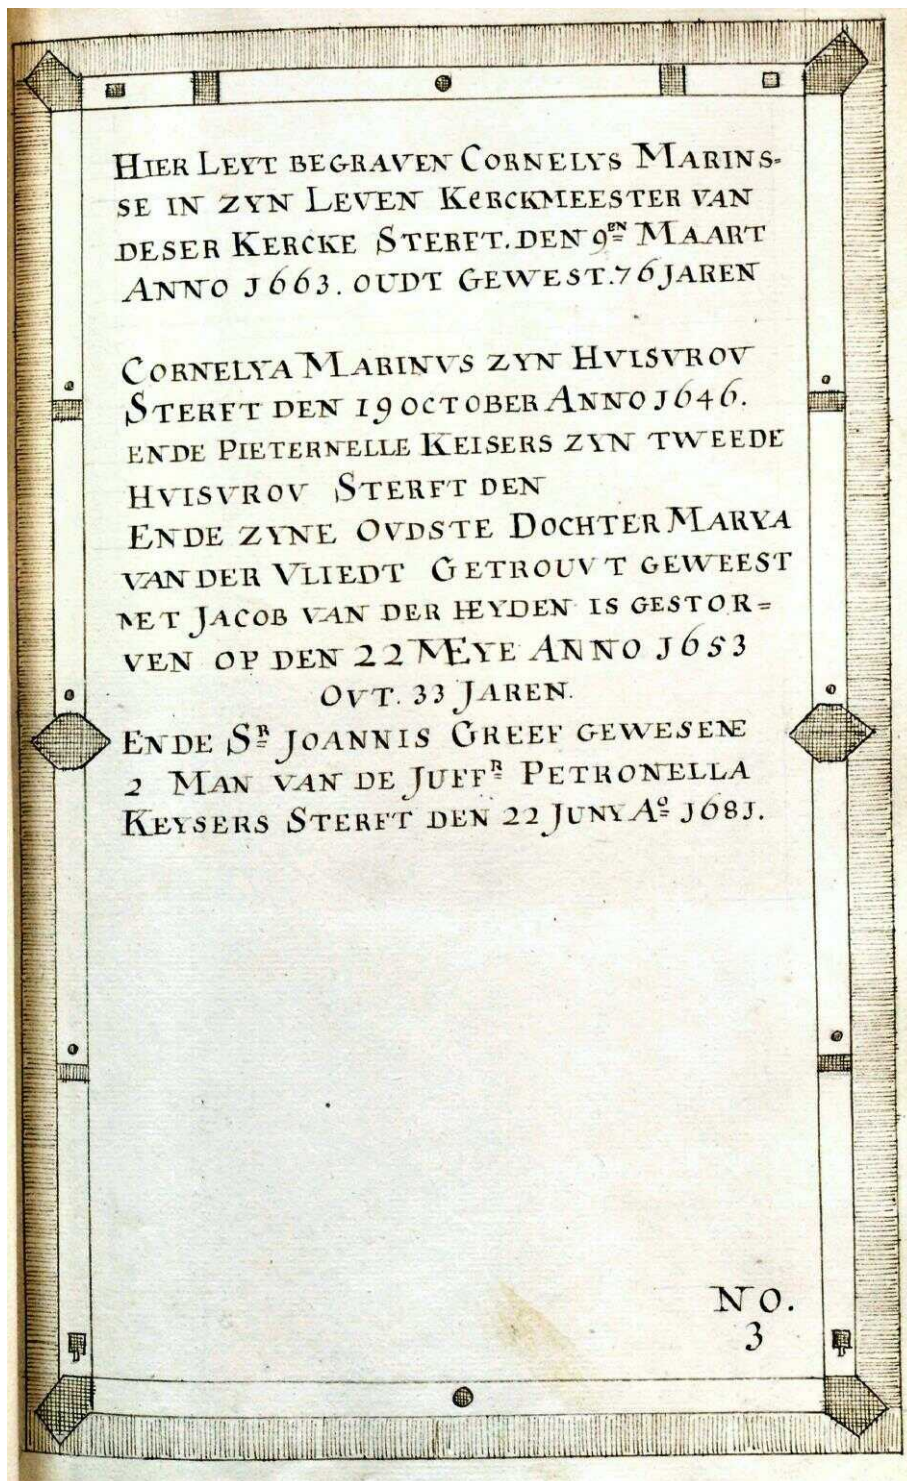 HIER LEYT BEGRAVEN CORNELYS MARINS=
SE IN ZYN LEVEN KERCKMEESTER VAN
DESER KERCKE STERFT. DEN 9EN MAART
ANNO 1663. OUDT GEWEST. 76 JAREN
CORNELYA MARINVS ZYN HVISVROV
STERFT DEN 19 OCTOBER ANNO 1646.
ENDE PIETERNELLE KEISERS ZYN TWEEDE
HVISVROV STERFT DEN
ENDE ZYNE OVDSTE DOCHTER MARYA
VAN DER VLIEDT GETROUVT GEWEEST
MET JACOB VAN DER HEYDEN IS GESTOR=
VEN OP DEN 22 MEYE ANNO 1653
OVT. 33 JAREN.
ENDE SR JOANNIS GREEF GEWESENE
2 MAN VAN DE JUFFR PETRONELLA
KEYSERS STERFT DEN 22 JUNY Ao 1681.
NO.
3